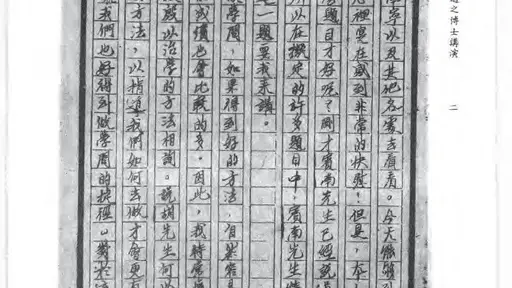 之博士講演
二
學以及其他名處去看看。今天能夠
心裡實在感到非常的快慰。但是，在
題目才好呢？剛才賓南先生已經說
所以在擬定的許多題目中，賓南先生
一題要我來講。
學問，如果得到好的方法，自然容易
成績也會比較的多。因此，我時常
以治學的方法相詢。說胡先生何以
方法，以指導我們如何去做才會更有
我們也好得到做學問的捷徑。」對於